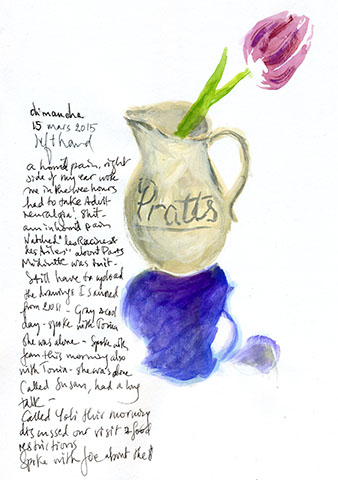 dimanche
15 mars 2015
left hand
a horrid pain, right
side of my ear woke
me in the wee hours
had to take Advil
neuralgia! Shit-
am in horrid pain
Watched "les Racines et
des Ailes" about Paris
was
Still have to upload
the drawings I
from 2011 - Gray & cool
day - spoke with Tonia
she was alone - Spoke with
Jean this morning also
with Tonia - she was alone
Called Susan, had a long
talk -
Called Yoli this morning
discussed our visit & food
restrictions
Spoke with Joe about the
Pratts